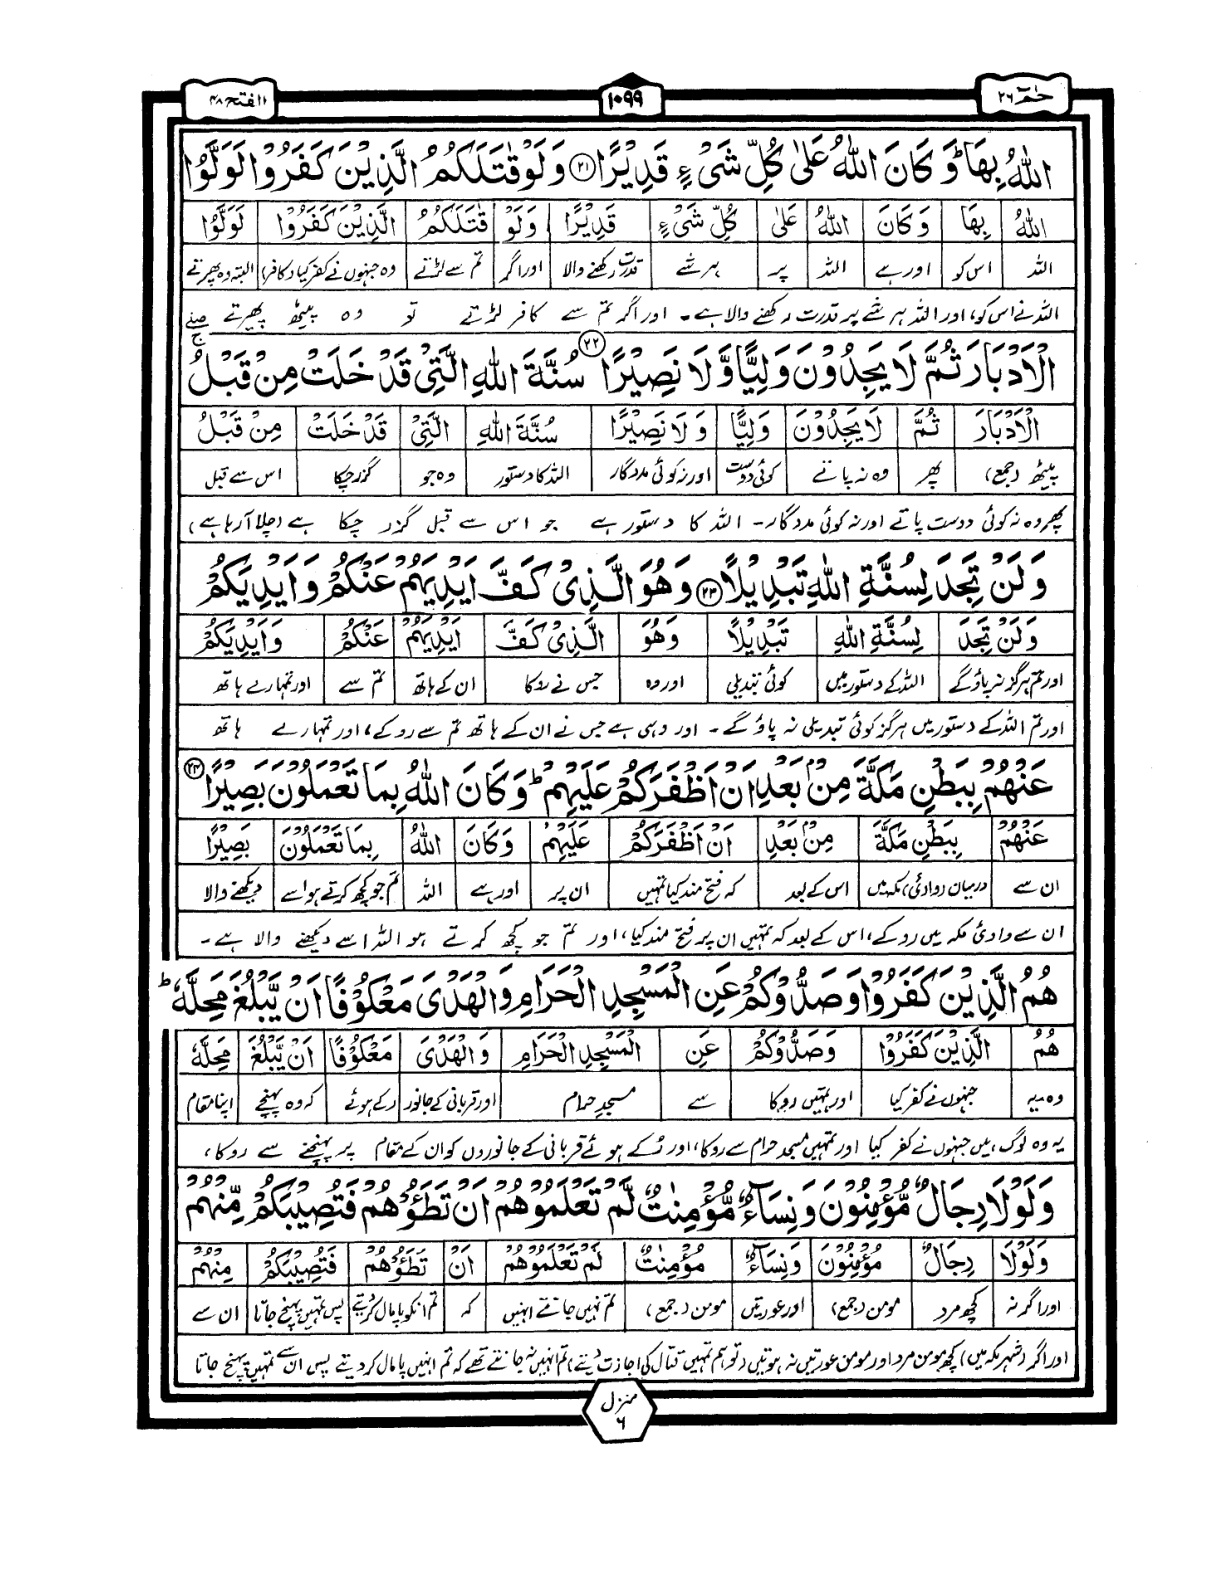 حٰمٓ ۲۶
۱۰۹۹
الفتح ۴۸
اللّٰهُ بِهَا ؕ وَ كَانَ اللّٰهُ عَلٰى كُلِّ شَیْءٍ قَدِیْرًا ﴿۲۱﴾ وَ لَوْ قٰتَلَكُمُ الَّذِیْنَ كَفَرُوْا لَوَلَّوُا
اللّٰهُ بِهَا وَ كَانَ اللّٰهُ عَلٰى كُلِّ شَیْءٍ قَدِیْرًا وَ لَوْ قٰتَلَكُمُ الَّذِیْنَ كَفَرُوْا لَوَلَّوُا
اللہ اس کو اور ہے اللہ پر ہر شے قدرت رکھنے والا اور اگر تم سے لڑتے وہ جنہوں نے کفر کیا (کافر) البتہ وہ پھیرتے
اللہ نے اس کو، اور اللہ ہر شے پر قدرت رکھنے والا ہے۔ اور اگر تم سے کافر لڑتے تو وہ پیٹھ پھیرتے
الْاَدْبَارَ ثُمَّ لَا یَجِدُوْنَ وَلِیًّا وَّ لَا نَصِیْرًا ﴿۲۲﴾ سُنَّةَ اللّٰهِ الَّتِیْ قَدْ خَلَتْ مِنْ قَبْلُ ۚۖ
الْاَدْبَارَ ثُمَّ لَا یَجِدُوْنَ وَلِیًّا وَ لَا نَصِیْرًا سُنَّةَ اللّٰهِ الَّتِیْ قَدْ خَلَتْ مِنْ قَبْلُ
پیٹھ (جمع) پھر وہ نہ پاتے کوئی دوست اور نہ کوئی مددگار اللہ کا دستور وہ جو گزر چکا اس سے قبل
پھر وہ نہ کوئی دوست پاتے اور نہ کوئی مددگار۔ اللہ کا دستور ہے جو اس سے قبل گزر چکا ہے (چلا آ رہا ہے)
وَ لَنْ تَجِدَ لِسُنَّةِ اللّٰهِ تَبْدِیْلًا ﴿۲۳﴾ وَ هُوَ الَّذِیْ كَفَّ اَیْدِیَهُمْ عَنْكُمْ وَ اَیْدِیَكُمْ
وَ لَنْ تَجِدَ لِسُنَّةِ اللّٰهِ تَبْدِیْلًا وَ هُوَ الَّذِیْ كَفَّ اَیْدِیَهُمْ عَنْكُمْ وَ اَیْدِیَكُمْ
اور تم ہرگز نہ پاؤ گے اللہ کے دستور میں کوئی تبدیلی اور وہ جس نے روکا ان کے ہاتھ تم سے اور تمہارے ہاتھ
اور تم اللہ کے دستور میں ہرگز کوئی تبدیلی نہ پاؤ گے۔ اور وہی ہے جس نے ان کے ہاتھ تم سے روکے، اور تمہارے ہاتھ
عَنْهُمْ بِبَطْنِ مَكَّةَ مِنْۢ بَعْدِ اَنْ اَظْفَرَكُمْ عَلَیْهِمْ ؕ وَ كَانَ اللّٰهُ بِمَا تَعْمَلُوْنَ بَصِیْرًا ﴿۲۴﴾
عَنْهُمْ بِبَطْنِ مَكَّةَ مِنْۢ بَعْدِ اَنْ اَظْفَرَكُمْ عَلَیْهِمْ وَ كَانَ اللّٰهُ بِمَا تَعْمَلُوْنَ بَصِیْرًا
ان سے درمیان (وادیٔ) مکہ میں اس کے بعد کہ فتح مند کیا تمہیں ان پر اور ہے اللہ تم جو کچھ کرتے ہو اسے دیکھنے والا
ان سے وادیٔ مکہ میں روکے، اس کے بعد کہ تمہیں ان پر فتح مند کیا، اور تم جو کچھ کرتے ہو اللہ اسے دیکھنے والا ہے۔
هُمُ الَّذِیْنَ كَفَرُوْا وَ صَدُّوْكُمْ عَنِ الْمَسْجِدِ الْحَرَامِ وَ الْهَدْیَ مَعْكُوْفًا اَنْ یَّبْلُغَ مَحِلَّهٗ ؕ
هُمُ الَّذِیْنَ كَفَرُوْا وَ صَدُّوْكُمْ عَنِ الْمَسْجِدِ الْحَرَامِ وَ الْهَدْیَ مَعْكُوْفًا اَنْ یَّبْلُغَ مَحِلَّهٗ
وہ ۔ یہ جنہوں نے کفر کیا اور تمہیں روکا سے مسجدِ حرام اور قربانی کے جانور رکے ہوئے کہ وہ پہنچے اپنا مقام
یہ وہ لوگ ہیں جنہوں نے کفر کیا اور تمہیں مسجدِ حرام سے روکا، اور رُکے ہوئے قربانی کے جانوروں کو ان کے مقام پر پہنچنے سے روکا،
وَ لَوْ لَا رِجَالٌ مُّؤْمِنُوْنَ وَ نِسَآءٌ مُّؤْمِنٰتٌ لَّمْ تَعْلَمُوْهُمْ اَنْ تَطَـُٔوْهُمْ فَتُصِیْبَكُمْ مِّنْهُمْ
وَ لَوْ لَا رِجَالٌ مُؤْمِنُوْنَ وَ نِسَآءٌ مُؤْمِنٰتٌ لَمْ تَعْلَمُوْهُمْ اَنْ تَطَـُٔوْهُمْ فَتُصِیْبَكُمْ مِنْهُمْ
اور اگر نہ کچھ مرد مومن (جمع) اور عورتیں مومن (جمع) تم نہیں جانتے انہیں کہ تم ان کو پامال کر دیتے پس تمہیں پہنچ جاتا ان سے
اور اگر (شہر مکہ میں) کچھ مومن مرد اور مومن عورتیں نہ ہوتیں (تو ہم تمہیں قتال کی اجازت دیتے) تم انہیں نہ جانتے تھے کہ تم انہیں پامال کر دیتے پس ان سے تمہیں پہنچ جاتا
منزل ۶